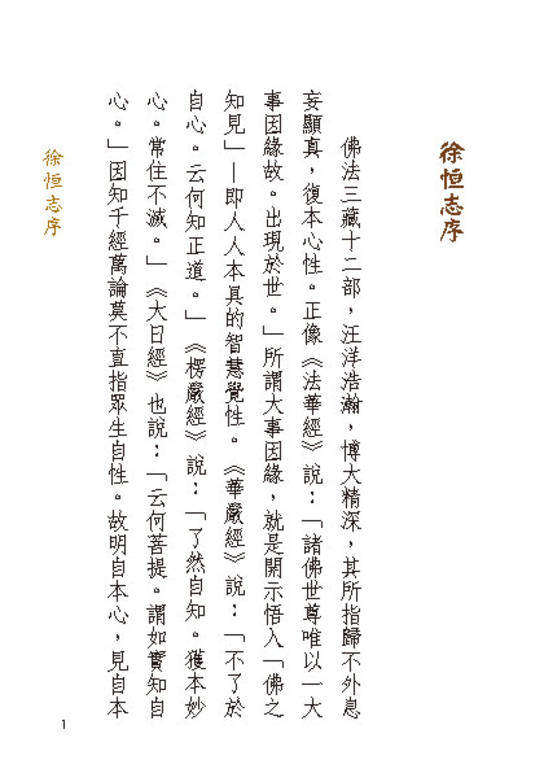 徐恒志序
佛法三藏十二部，汪洋浩瀚，博大精深，其所指歸不外息
妄顯真，復本心性。正像《法華經》說：「諸佛世尊唯以一大
事因緣故。出現於世。」所謂大事因緣，就是開示悟入「佛之
知見」—即人人本具的智慧覺性。《華嚴經》說：「不了於
自心。云何知正道。」《楞嚴經》說：「了然自知。獲本妙
心。常住不滅。」《大日經》也說：「云何菩提。謂如實知自
心。」因知千經萬論莫不直指眾生自性。故明自本心，見自本
徐恒志序
1